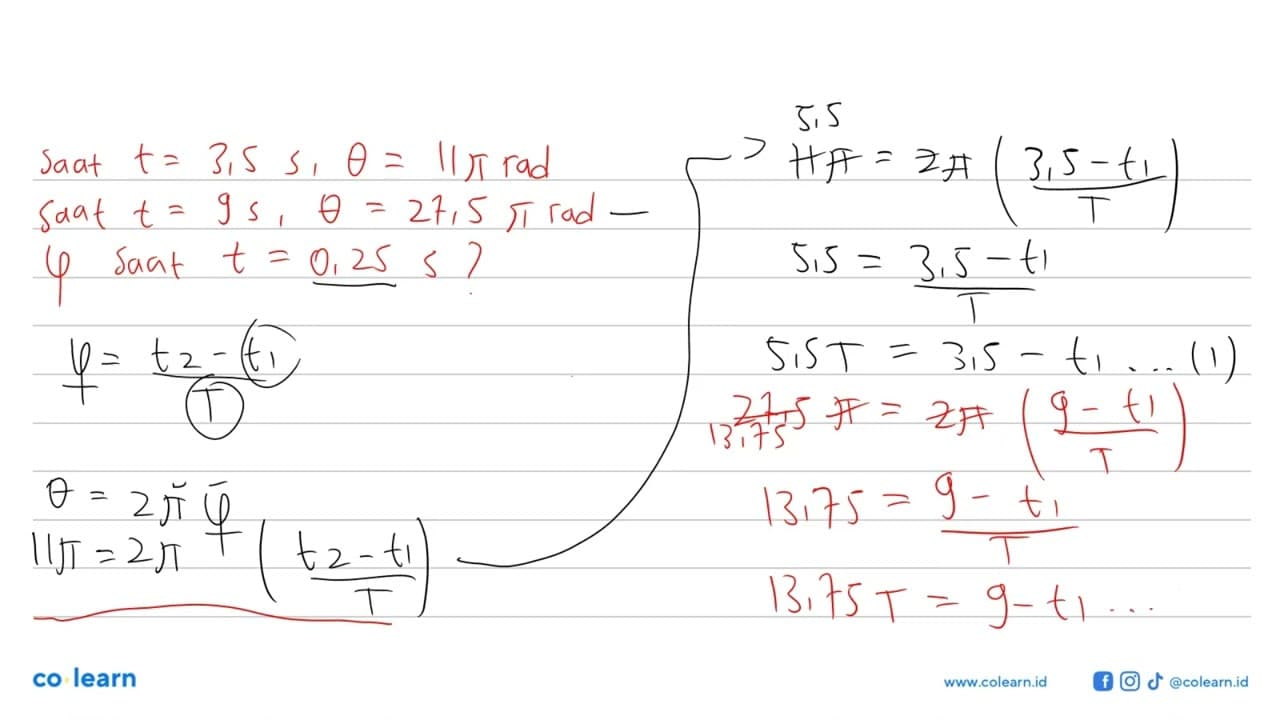 saat t = 3,5 s, θ = 11π rad
saat t = 9 s, θ = 27,5 π rad —
φ saat t = 0,25 s ?
φ = (t2 - t1)/T
θ = 2π φ
11π = 2π ((t2 - t1)/T)
5,5
11π = 2π ((3,5 - t1)/T)
5,5 = (3,5 - t1)/T
5,5T = 3,5 - t1 ... (1)
27,5 π = 2π ((9 - t1)/T)
13,75
13,75 = (9 - t1)/T
13,75 T = 9 - t1 ...
co learn
www.colearn.id
@colearn.id